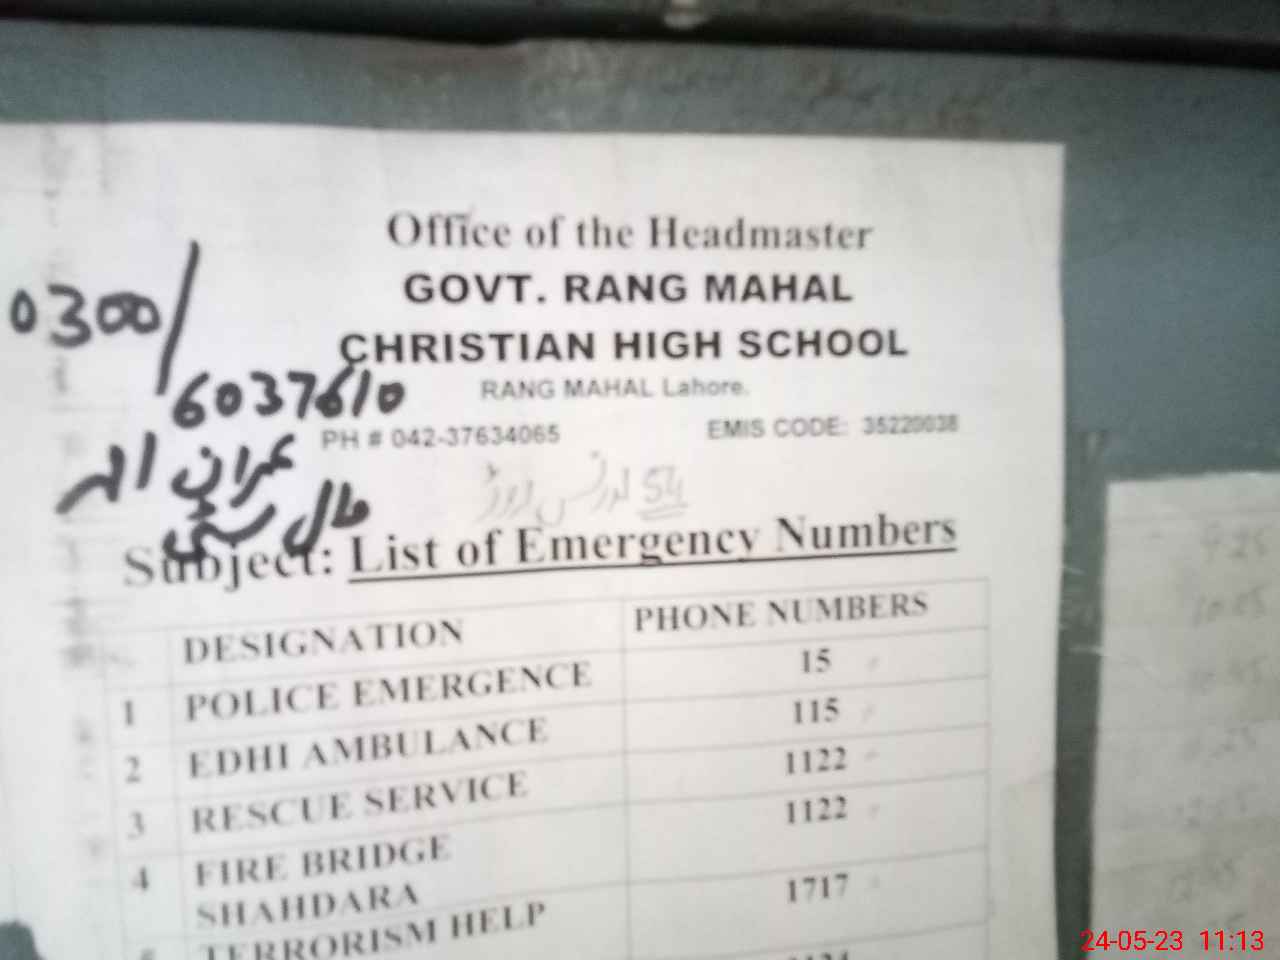 Office of the Headmaster
GOVT. RANG MAHAL
CHRISTIAN HIGH SCHOOL
RANG MAHAL Lahore.
PH # 042-37634065 EMIS CODE: 35220038
0300/
6037610
عمران
54
Subject: List of Emergency Numbers
DESIGNATION PHONE NUMBERS
1 POLICE EMERGENCE 15
2 EDHI AMBULANCE 115
3 RESCUE SERVICE 1122
4 FIRE BRIDGE 1122
SHAHDARA
TERRORISM HELP 1717
24-05-23 11:13